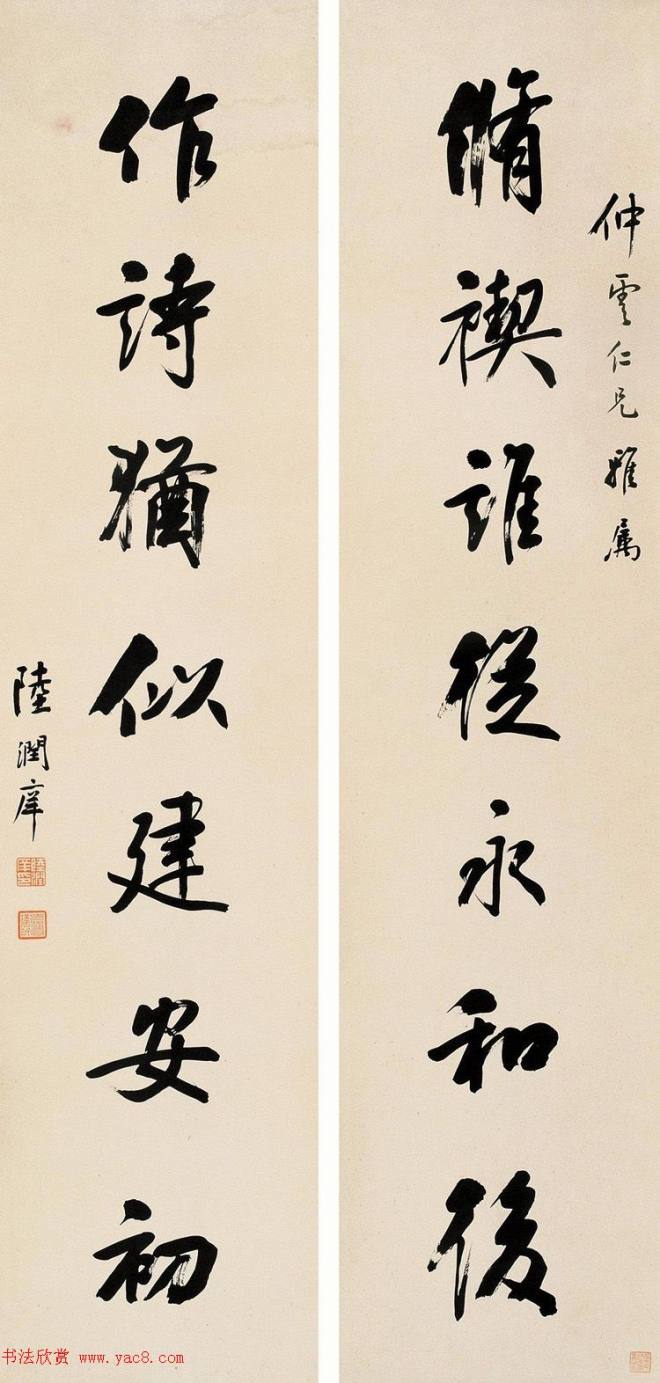 仲雲仁兄雅属
脩禊誰從永和後
作詩猶似建安初
陸潤庠
书法欣赏 www.yac8.com